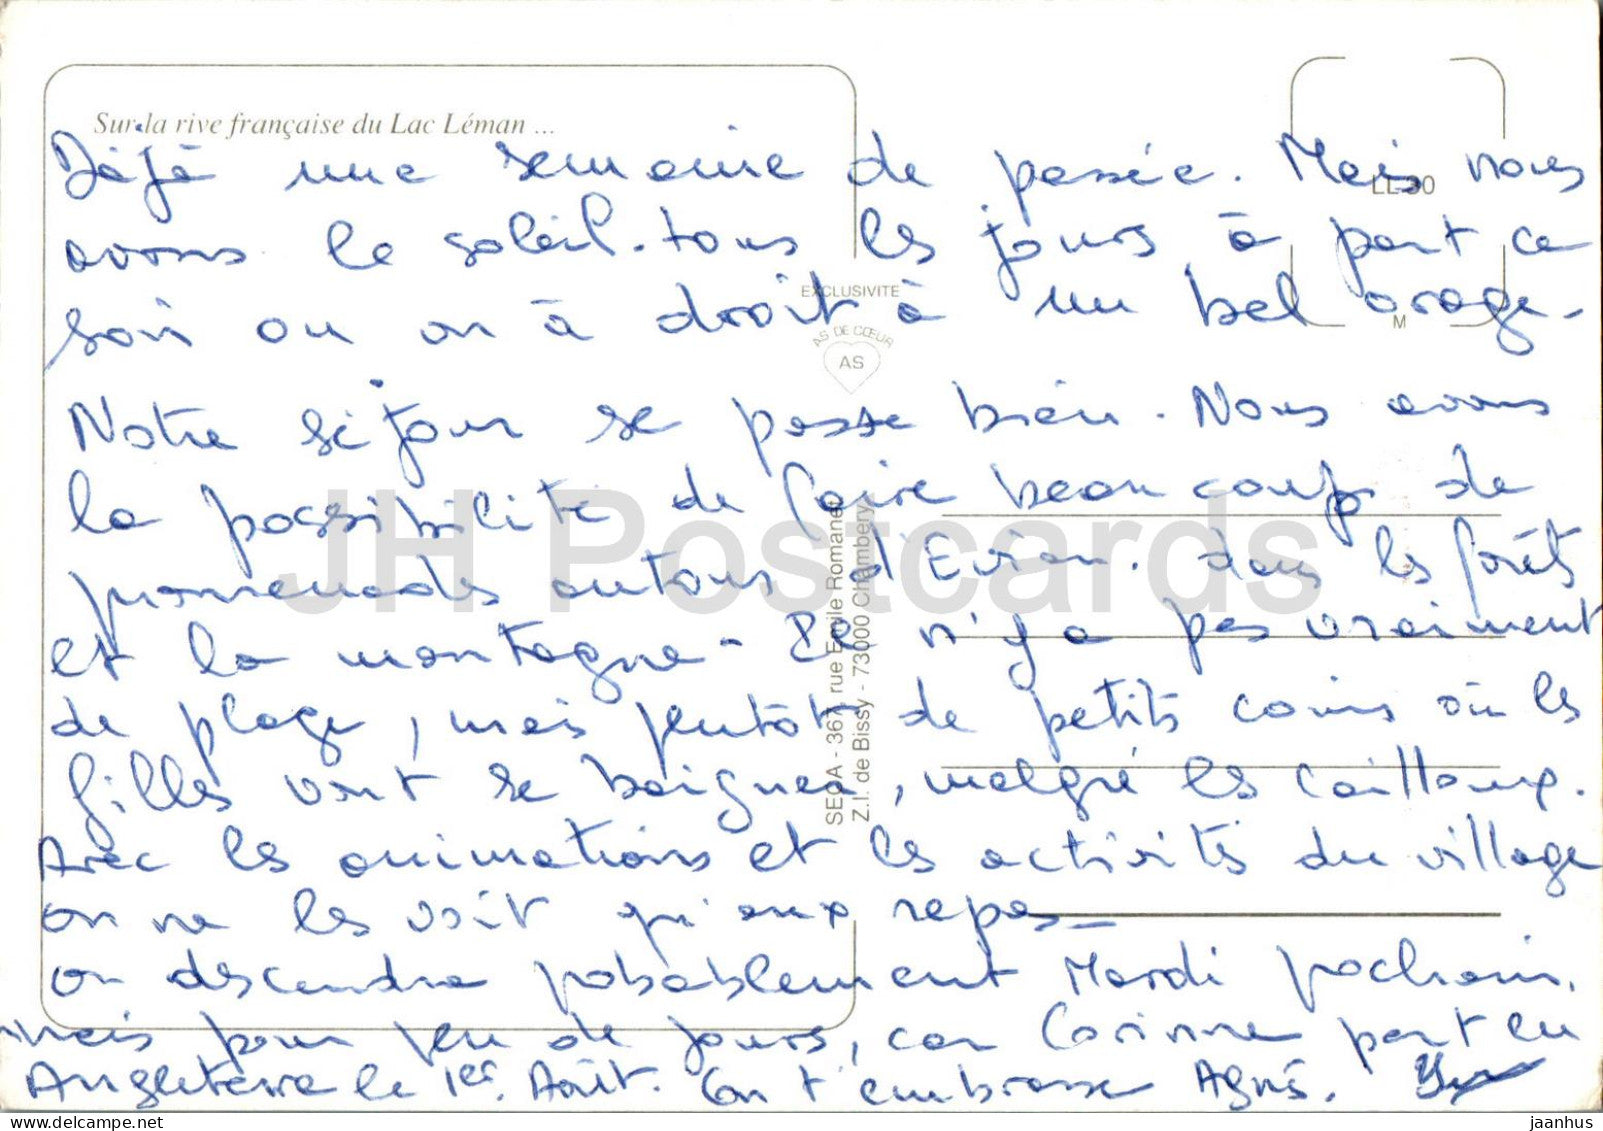 Sur la rive française du Lac Léman ...
Déjà une semaine de passée. Mais nous
avons le soleil. tous les jours à part ce
soir ou on à droit à un bel orage.
Notre séjour se passe bien. Nous avons
la possibilité de faire beaucoup de
promenades autour d'Evian. dans les forêts
et la montagne - Il n'y a pas vraiment
de plage, mais plutôt de petits coins où les
filles vont se baigner, malgré les cailloux.
Avec les animations et les activités du village
on ne les voit qu'aux repas -
on descendra probablement Mardi prochain.
mais pour peu de jours, car Corinne part en
Angleterre le 1er. Août. On t'embrasse Agnés.
EXCLUSIVITE
AS DE CŒUR
AS
367, rue Emile Romanet
Z.I. de Bissy - 73000 Chambery
M
JH Postcards
jaanhus © delcampe.net